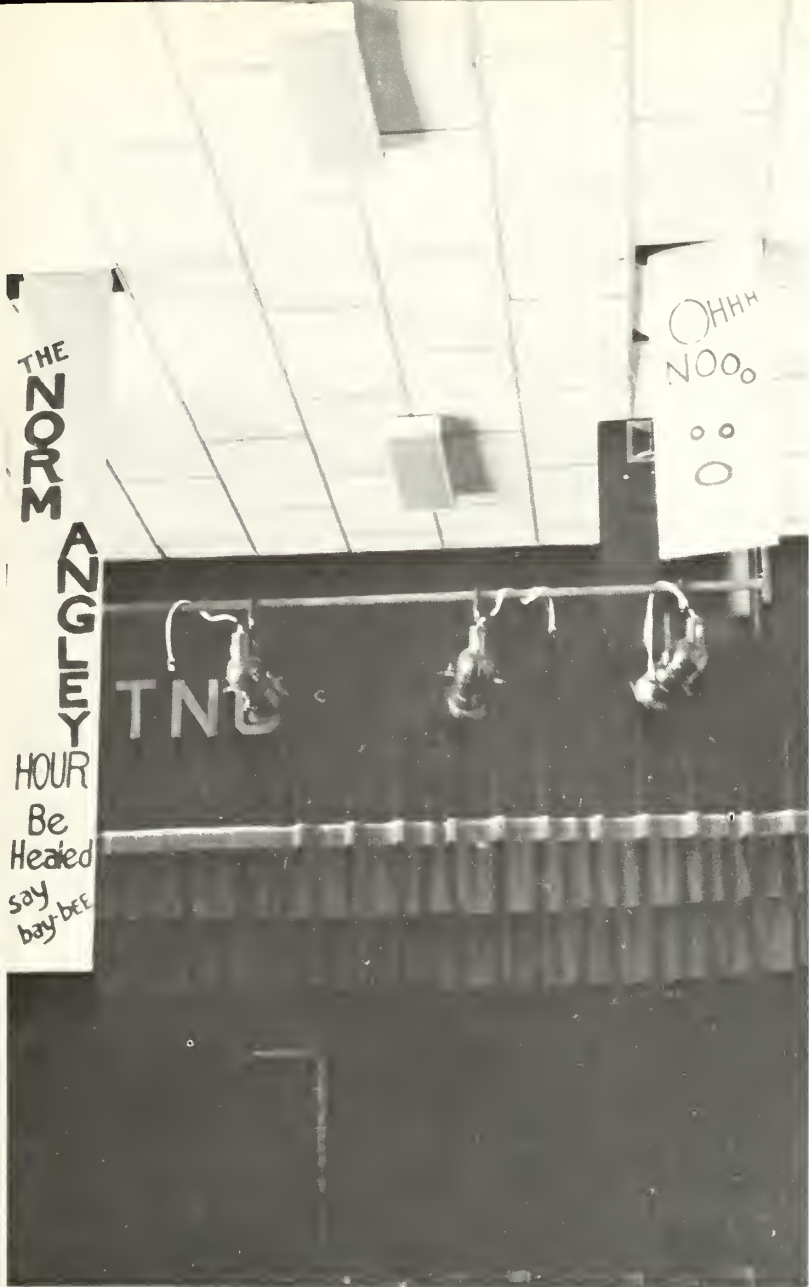 THE
NORM
ANGLEY
HOUR
Be
Healed
say
bay-bEE
OHHH
NOOo
TNU